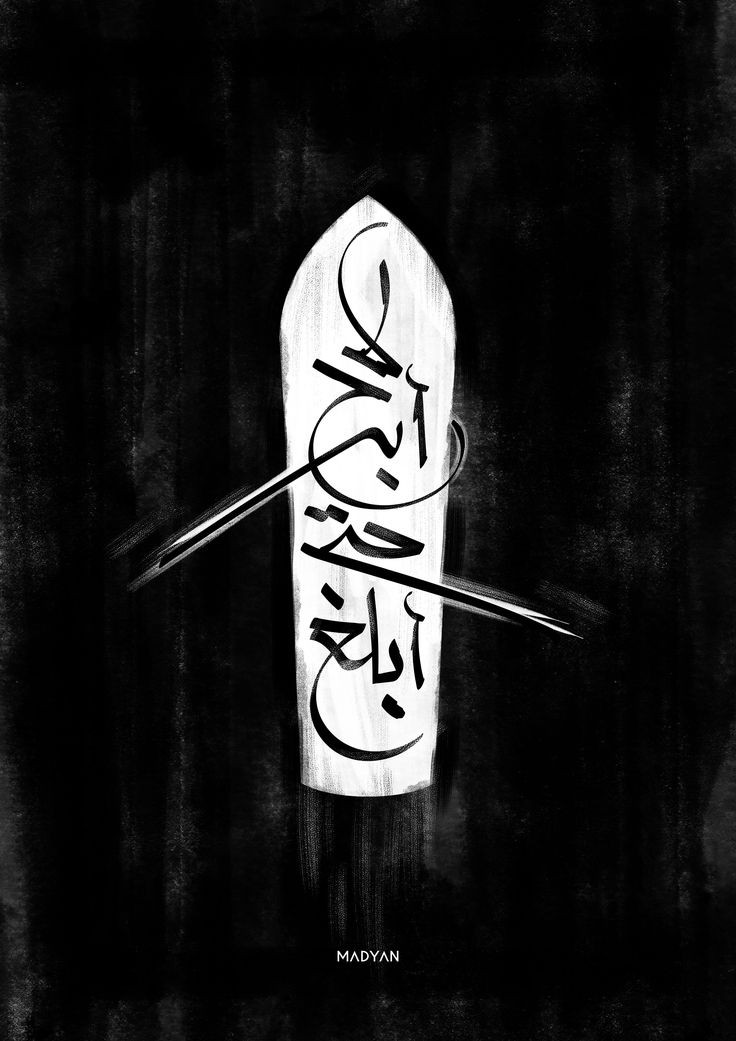 لا
أبرح
حتى
أبلغ
MADYAN